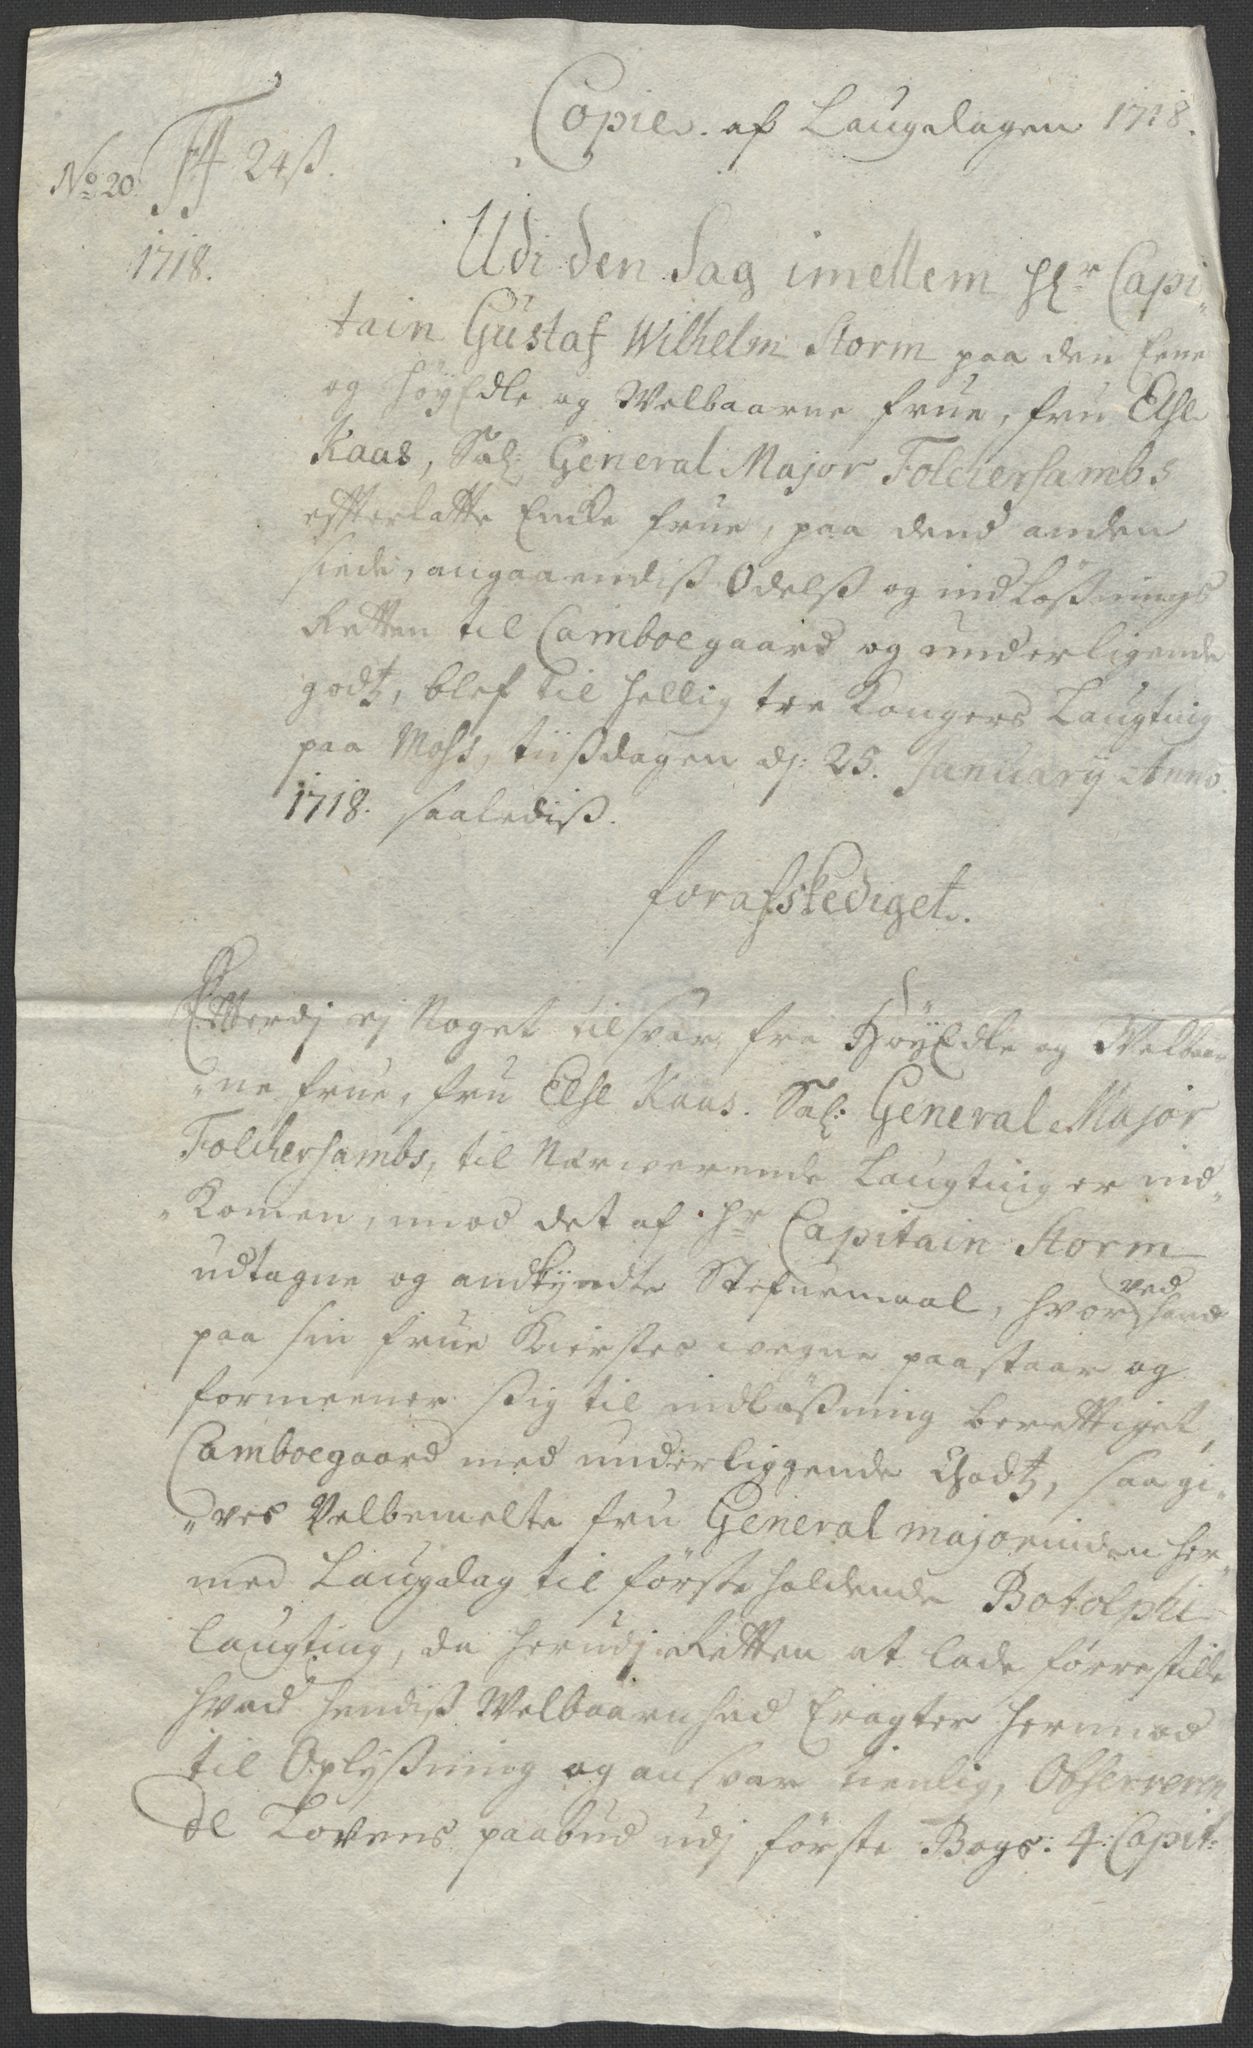 Copie af Laugdagen 1718.
No 20. 24 ß.
1718.
Udi den Sag imellem Hr Capi„
tain Gustaf Wilhelm Storm paa den Eene
og HöyEdle og Welbaarne frue, fru Else
Kaas, Sal: General Major Folchersambs
efterlatte Encke frue, paa dend anden
siede, angaaendiß Odelß og indlößnings
Retten til Camboegaard og underligende
godtz, blef til hellig tre Kongers Laugting
paa Moss, tiißdagen dj: 25. Januarij Anno.
1718. saalediß.
forafskediget.
Efterdj ej Noget tilsvar fra HöyEdle og Welbaar
„ne frue, fru Else Kaas. Sal: General Major
Folchersambs, til Nærwerende Laugting er ind„
„Komen, imod det af Hr Capitain Storm
udtagne og andkyndte Stefnemaal, hvor ved hand
paa sin frue Kierstes wegne paastaar og
formeener sig til indlößning berettiget,
Camboegaard med underliggende Godtz, saa gi„
„ves Velbemelte fru General majorinden her„
med Laugdag til förstholdende Botolphi
Laugting, da herudj Retten at lade förrestille
hvad hendiß Welbaarnhed Eragter herimod
til Oplyßning og ansvar tienlig, Observeren
de Lovens paabud udj förste Bogs: 4: Capit: